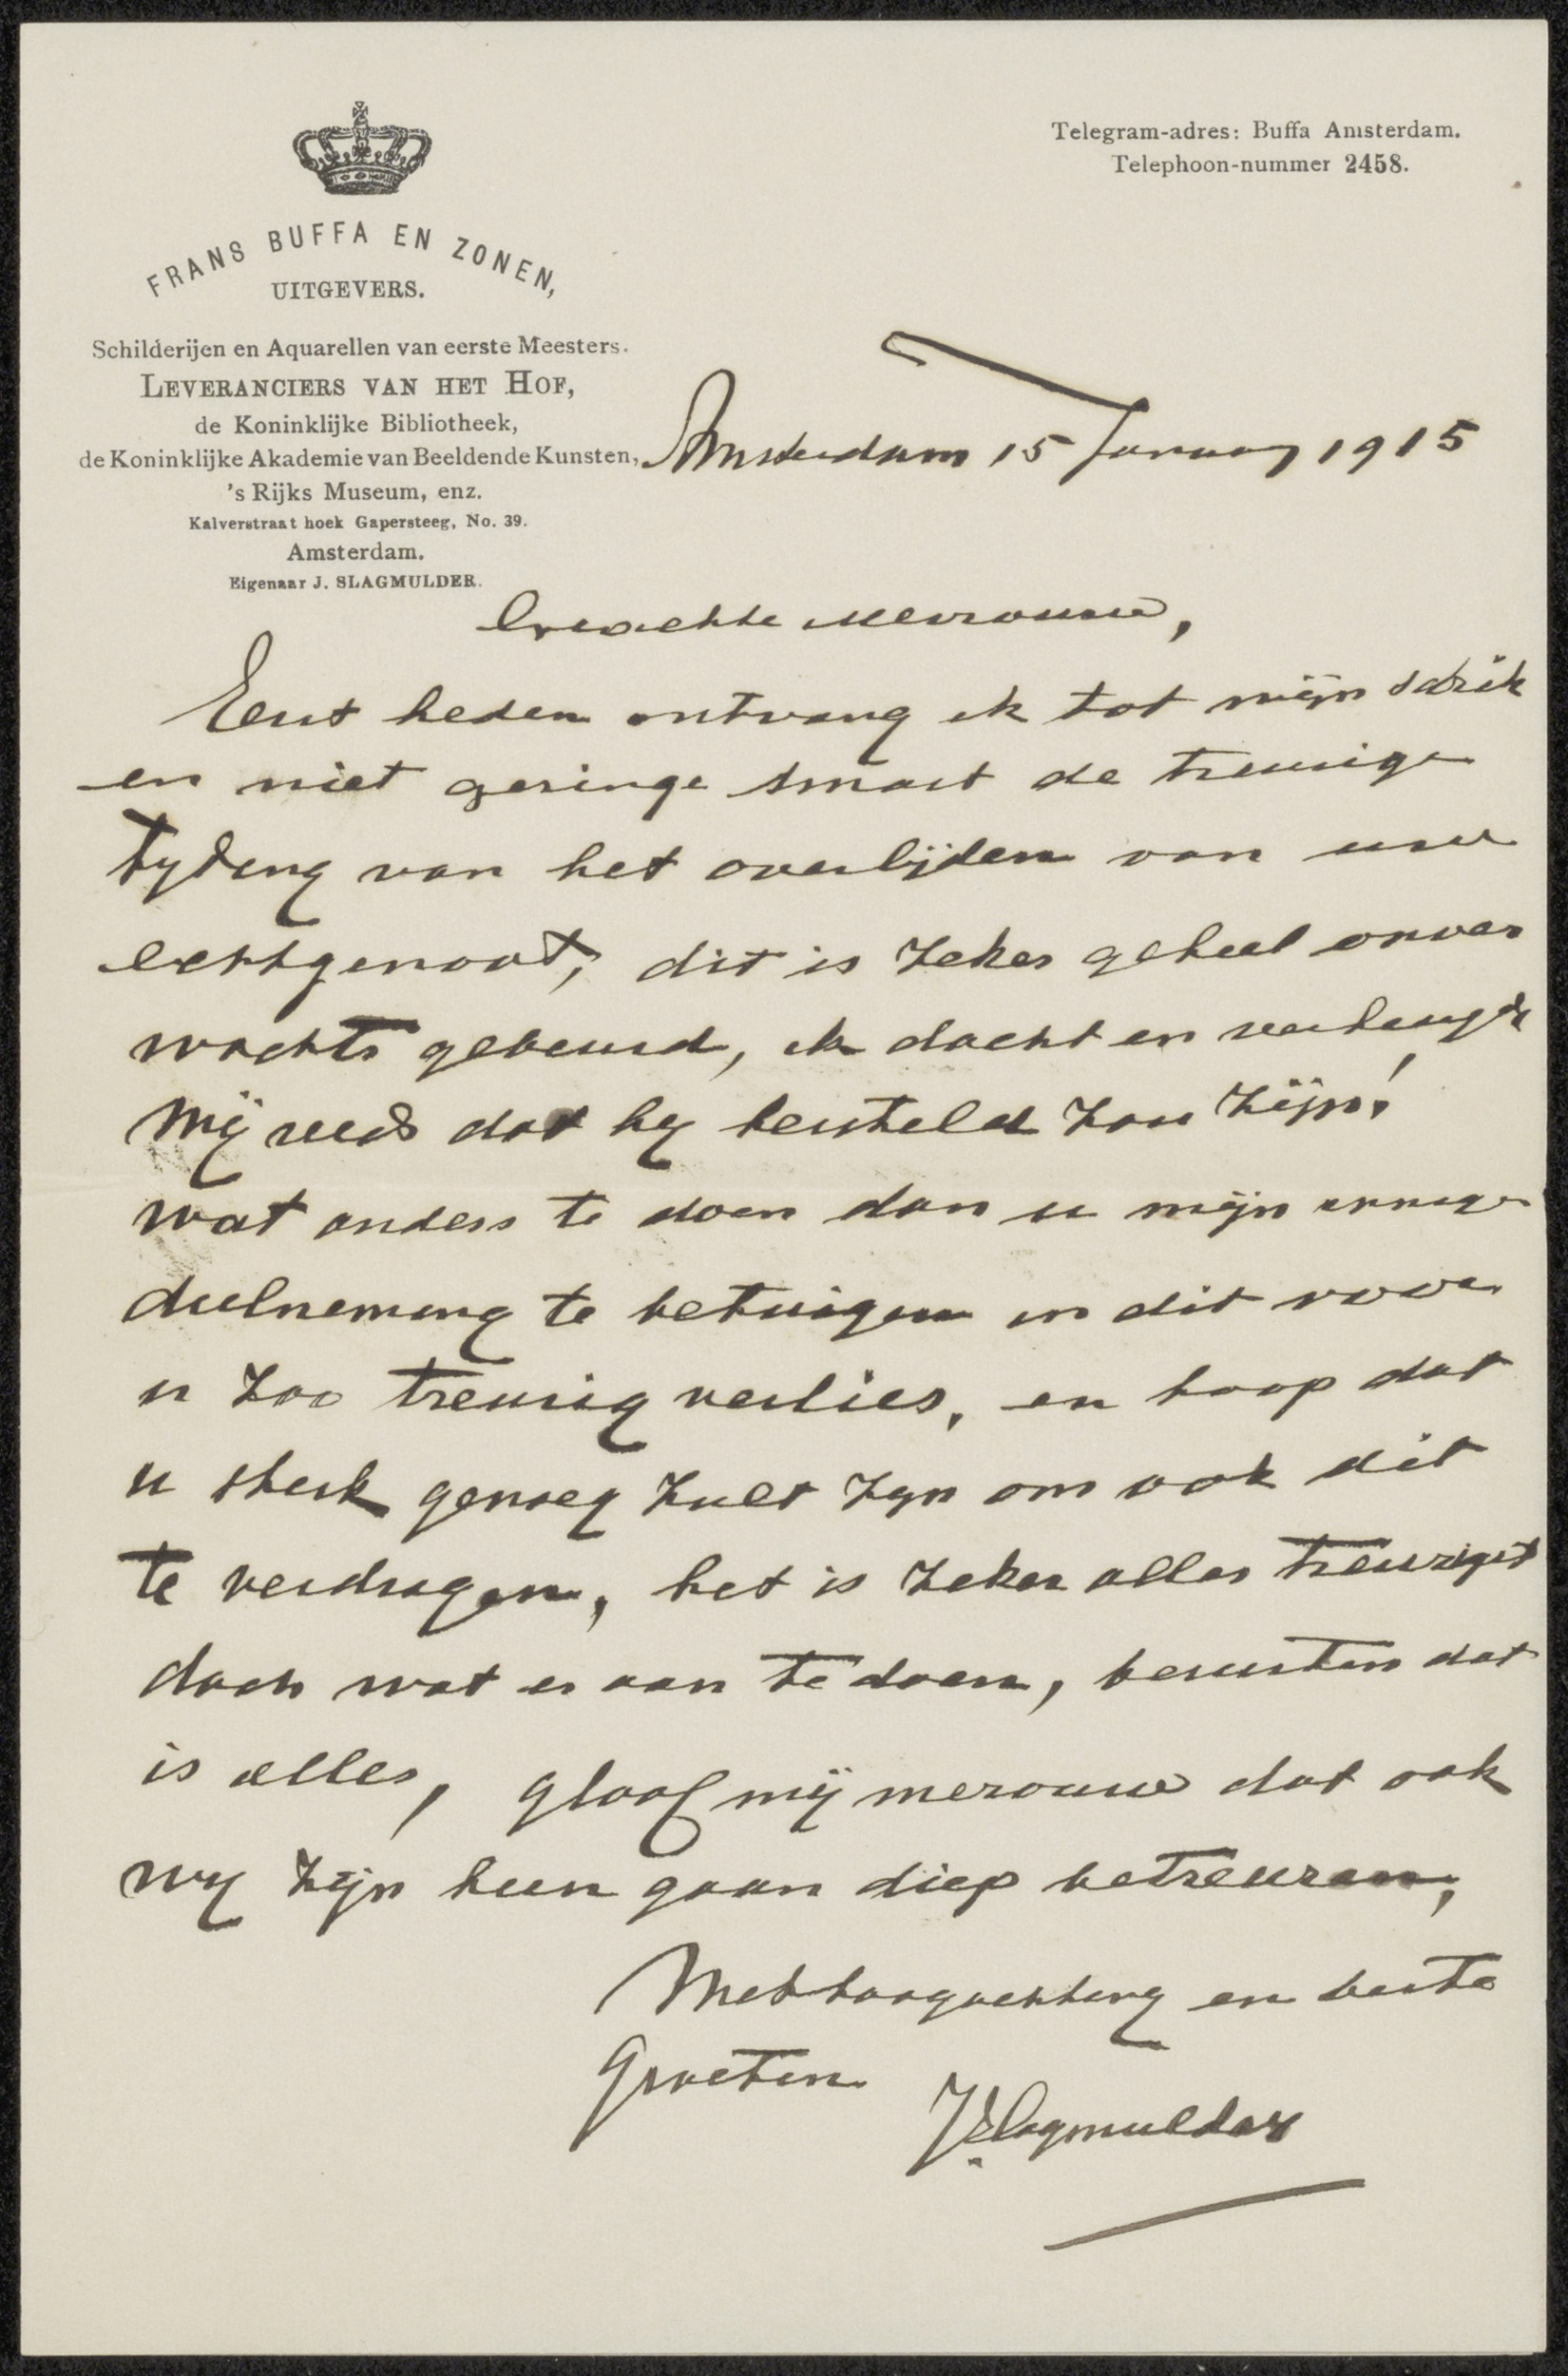 Telegram-adres: Buffa Amsterdam.
Telephoon-nummer 2458.
FRANS BUFFA EN ZONEN,
UITGEVERS.
Schilderijen en Aquarellen van eerste Meesters.
LEVERANCIERS VAN HET HOF,
de Koninklijke Bibliotheek,
de Koninklijke Akademie van Beeldende Kunsten,
's Rijks Museum, enz.
Kalverstraat hoek Gapersteeg, No. 39.
Amsterdam.
Eigenaar J. SLAGMULDER.
Amsterdam 15 January 1915
Geachte Mevrouw,
Eerst heden ontvang ik tot mijn schrik
en niet geringe smart de treurige
tyding van het overlijden van uw
echtgenoot, dit is zeker geheel onver
wachts gebeurd, ik dacht en verheugde
mij reeds dat hy hersteld zou zijn!
wat anders te doen dan u mijn innige
deelneming te betuigen in dit voor
u zoo treurig verlies, en hoop dat
u sterk genoeg zult zyn om ook dit
te verdragen, het is zeker aller treurigst
doch wat er aan te doen, berusten dat
is alles, gloof mij mevrouw dat ook
wy zijn heen gaan diep betreuren,
Met hoogachting en beste
Groeten
JSlagmulder